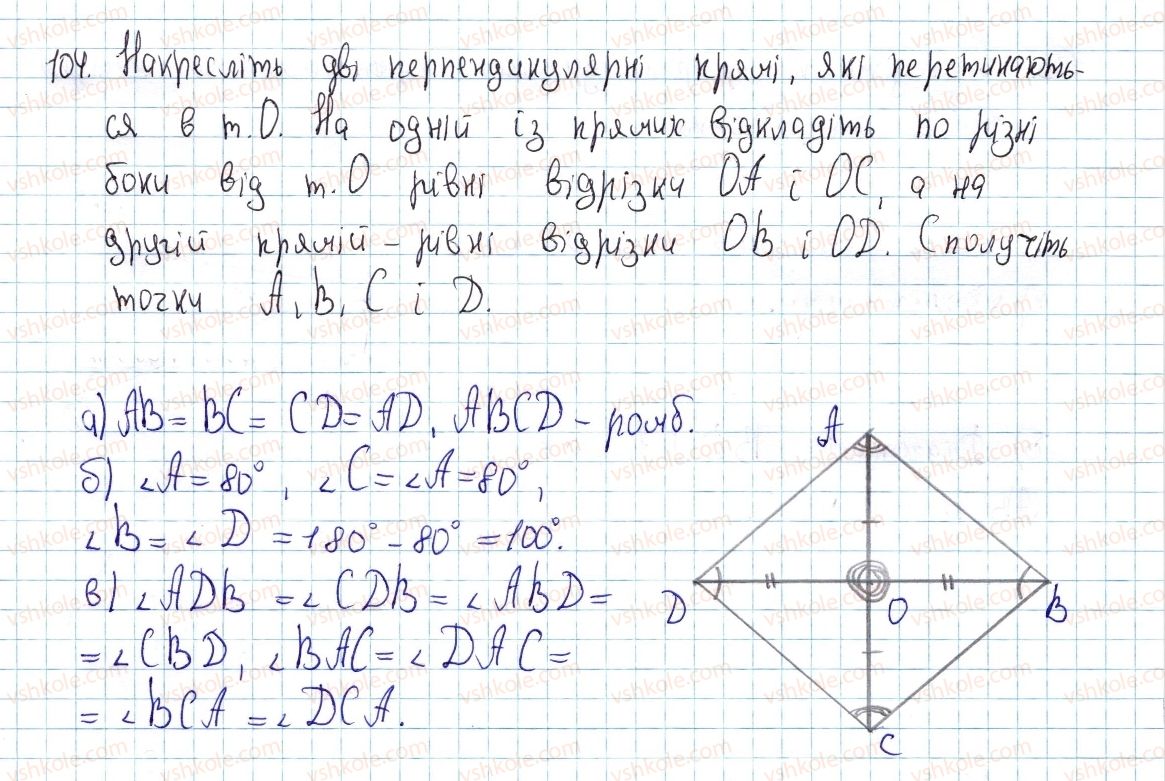 104. Накресліть дві перпендикулярні прямі, які перетинають-
ся в т.О. На одній із прямих відкладіть по різні
боки від т.О рівні відрізки ОА і ОС, а на
другій прямій – рівні відрізки ОВ і OD. Сполучіть
точки А, В, С і D.
а) AB = BC = CD = AD, ABCD – ромб.
б) ∠A = 80°, ∠C = ∠A = 80°,
∠B = ∠D = 180° – 80° = 100°.
в) ∠ADB = ∠CDB = ∠ABD =
= ∠CBD, ∠BAC = ∠DAC =
= ∠BCA = ∠DCA.
A
D
O
B
C
vshkole.com